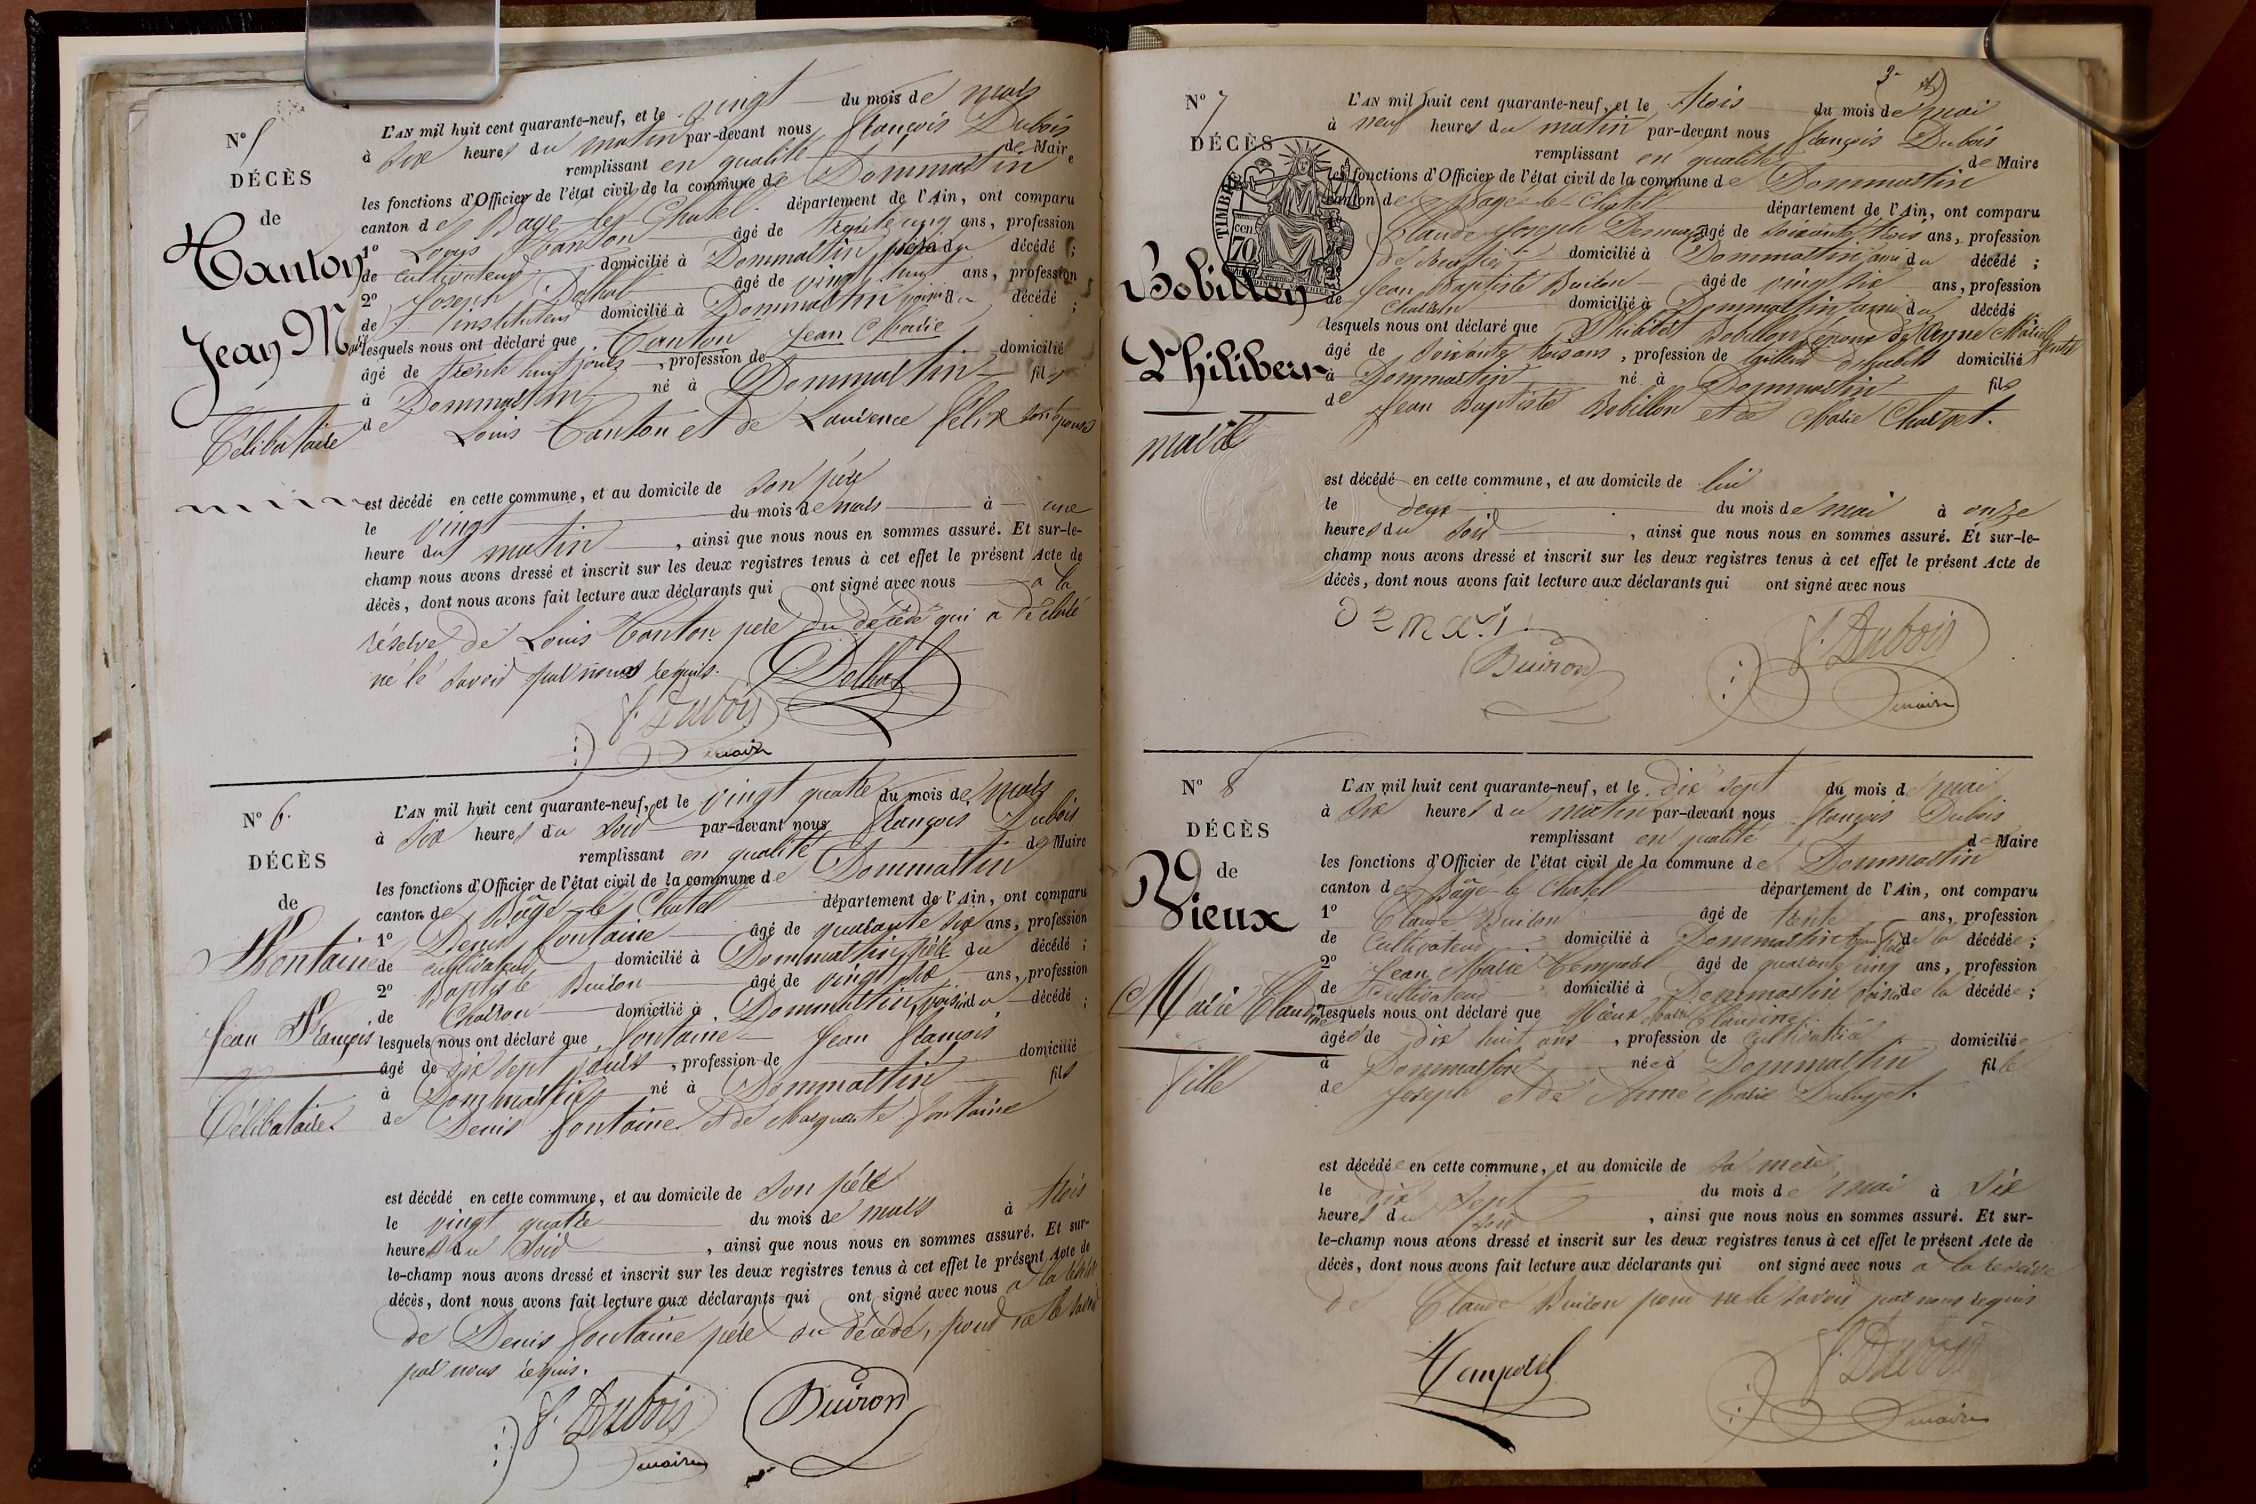 N° 5
DÉCÈS
de
Canton
Jean Marie
Célibataire
L'AN mil huit cent quarante-neuf, et le vingt du mois de mars
à six heures du matin par-devant nous françois Dubois
remplissant en qualité de Maire
les fonctions d'Officier de l'état civil de la commune de Dommartin
canton de Bagé-le-Chatel département de l'Ain, ont comparu
1° Louis Canton âgé de trente cinq ans, profession
de cultivateur domicilié à Dommartin père du décédé ;
2° Joseph âgé de vingt huit ans, profession
de instituteur domicilié à Dommartin voisin du décédé ;
lesquels nous ont déclaré que Canton Jean Marie
âgé de trente huit jours, profession de domicilié
à Dommartin né à Dommartin fils
de Louis Canton et de Laurence félix son épouse
est décédé en cette commune, et au domicile de son père
le vingt du mois de mars à une
heure du matin, ainsi que nous nous en sommes assuré. Et sur-le-
champ nous avons dressé et inscrit sur les deux registres tenus à cet effet le présent Acte de
décès, dont nous avons fait lecture aux déclarants qui ont signé avec nous a la
réserve de Louis Canton père du décédé qui a déclaré
ne le savoir par nous requis.
f. Dubois
maire
N° 6.
DÉCÈS
de
fontaine
Jean françois
Célibataire.
L'AN mil huit cent quarante-neuf, et le vingt quatre du mois de mars
à six heures du soir par-devant nous françois Dubois
remplissant en qualité de Maire
les fonctions d'Officier de l'état civil de la commune de Dommartin
canton de Bâgé le Chatel département de l'Ain, ont comparu
1° Denis fontaine âgé de quarante six ans, profession
de cultivateur domicilié à Dommartin père du décédé ;
2° Baptiste Buiron âgé de vingt six ans, profession
de Charron domicilié à Dommartin, voisin du décédé ;
lesquels nous ont déclaré que fontaine Jean françois
âgé de dix sept jours, profession de domicilié
à Dommartin né à Dommartin fils
de Denis fontaine et de Marguerite fontaine
est décédé en cette commune, et au domicile de son père
le vingt quatre du mois de mars à trois
heures du soir, ainsi que nous nous en sommes assuré. Et sur-
le-champ nous avons dressé et inscrit sur les deux registres tenus à cet effet le présent Acte de
décès, dont nous avons fait lecture aux déclarants qui ont signé avec nous a la réserve
de Denis fontaine père du décédé, pour ne le savoir
par nous requis.
f. Dubois Buiron
maire
3
N° 7
DÉCÈS
de
Bobillon
Philibert
marié
TIMBRE
70 cen
L'AN mil huit cent quarante-neuf, et le trois du mois de mai
à neuf heures du matin par-devant nous françois Dubois
remplissant en qualité de Maire
les fonctions d'Officier de l'état civil de la commune de Dommartin
canton de Bagé-le-Chatel département de l'Ain, ont comparu
Claude Joseph âgé de soixante trois ans, profession
de domicilié à Dommartin ami du décédé ;
Jean Baptiste Buiron âgé de vingt six ans, profession
de Charron domicilié à Dommartin ami du décédé
lesquels nous ont déclaré que Philibert Bobillon époux de Anne Marie
âgé de soixante trois ans, profession de domicilié
à Dommartin né à Dommartin fils
de Jean Baptiste Bobillon et de Marie Charvet.
est décédé en cette commune, et au domicile de lui
le deux du mois de mai à onze
heures du soir, ainsi que nous nous en sommes assuré. Et sur-le-
champ nous avons dressé et inscrit sur les deux registres tenus à cet effet le présent Acte de
décès, dont nous avons fait lecture aux déclarants qui ont signé avec nous
Buiron f. Dubois
maire
N° 8
DÉCÈS
de
Vieux
Marie Claudine
fille
L'AN mil huit cent quarante-neuf, et le dix sept du mois de mai
à six heures du matin par-devant nous françois Dubois
remplissant en qualité de Maire
les fonctions d'Officier de l'état civil de la commune de Dommartin
canton de Bâgé-le Chatel département de l'Ain, ont comparu
1° Claude Buiron âgé de trente ans, profession
de Cultivateur domicilié à Dommartin de la décédée ;
2° Jean Marie Temporel âgé de quarante cinq ans, profession
de Cultivateur domicilié à Dommartin voisin de la décédée ;
lesquels nous ont déclaré que Vieux Marie Claudine
âgée de dix huit ans, profession de Cultivatrice domiciliée
à Dommartin née à Dommartin fille
de Joseph et de Anne Marie
est décédée en cette commune, et au domicile de sa mère
le dix sept du mois de mai à six
heures du soir, ainsi que nous nous en sommes assuré. Et sur-
le-champ nous avons dressé et inscrit sur les deux registres tenus à cet effet le présent Acte de
décès, dont nous avons fait lecture aux déclarants qui ont signé avec nous a la réserve
de Claude Buiron pour ne le savoir par nous requis
Temporel f. Dubois
maire